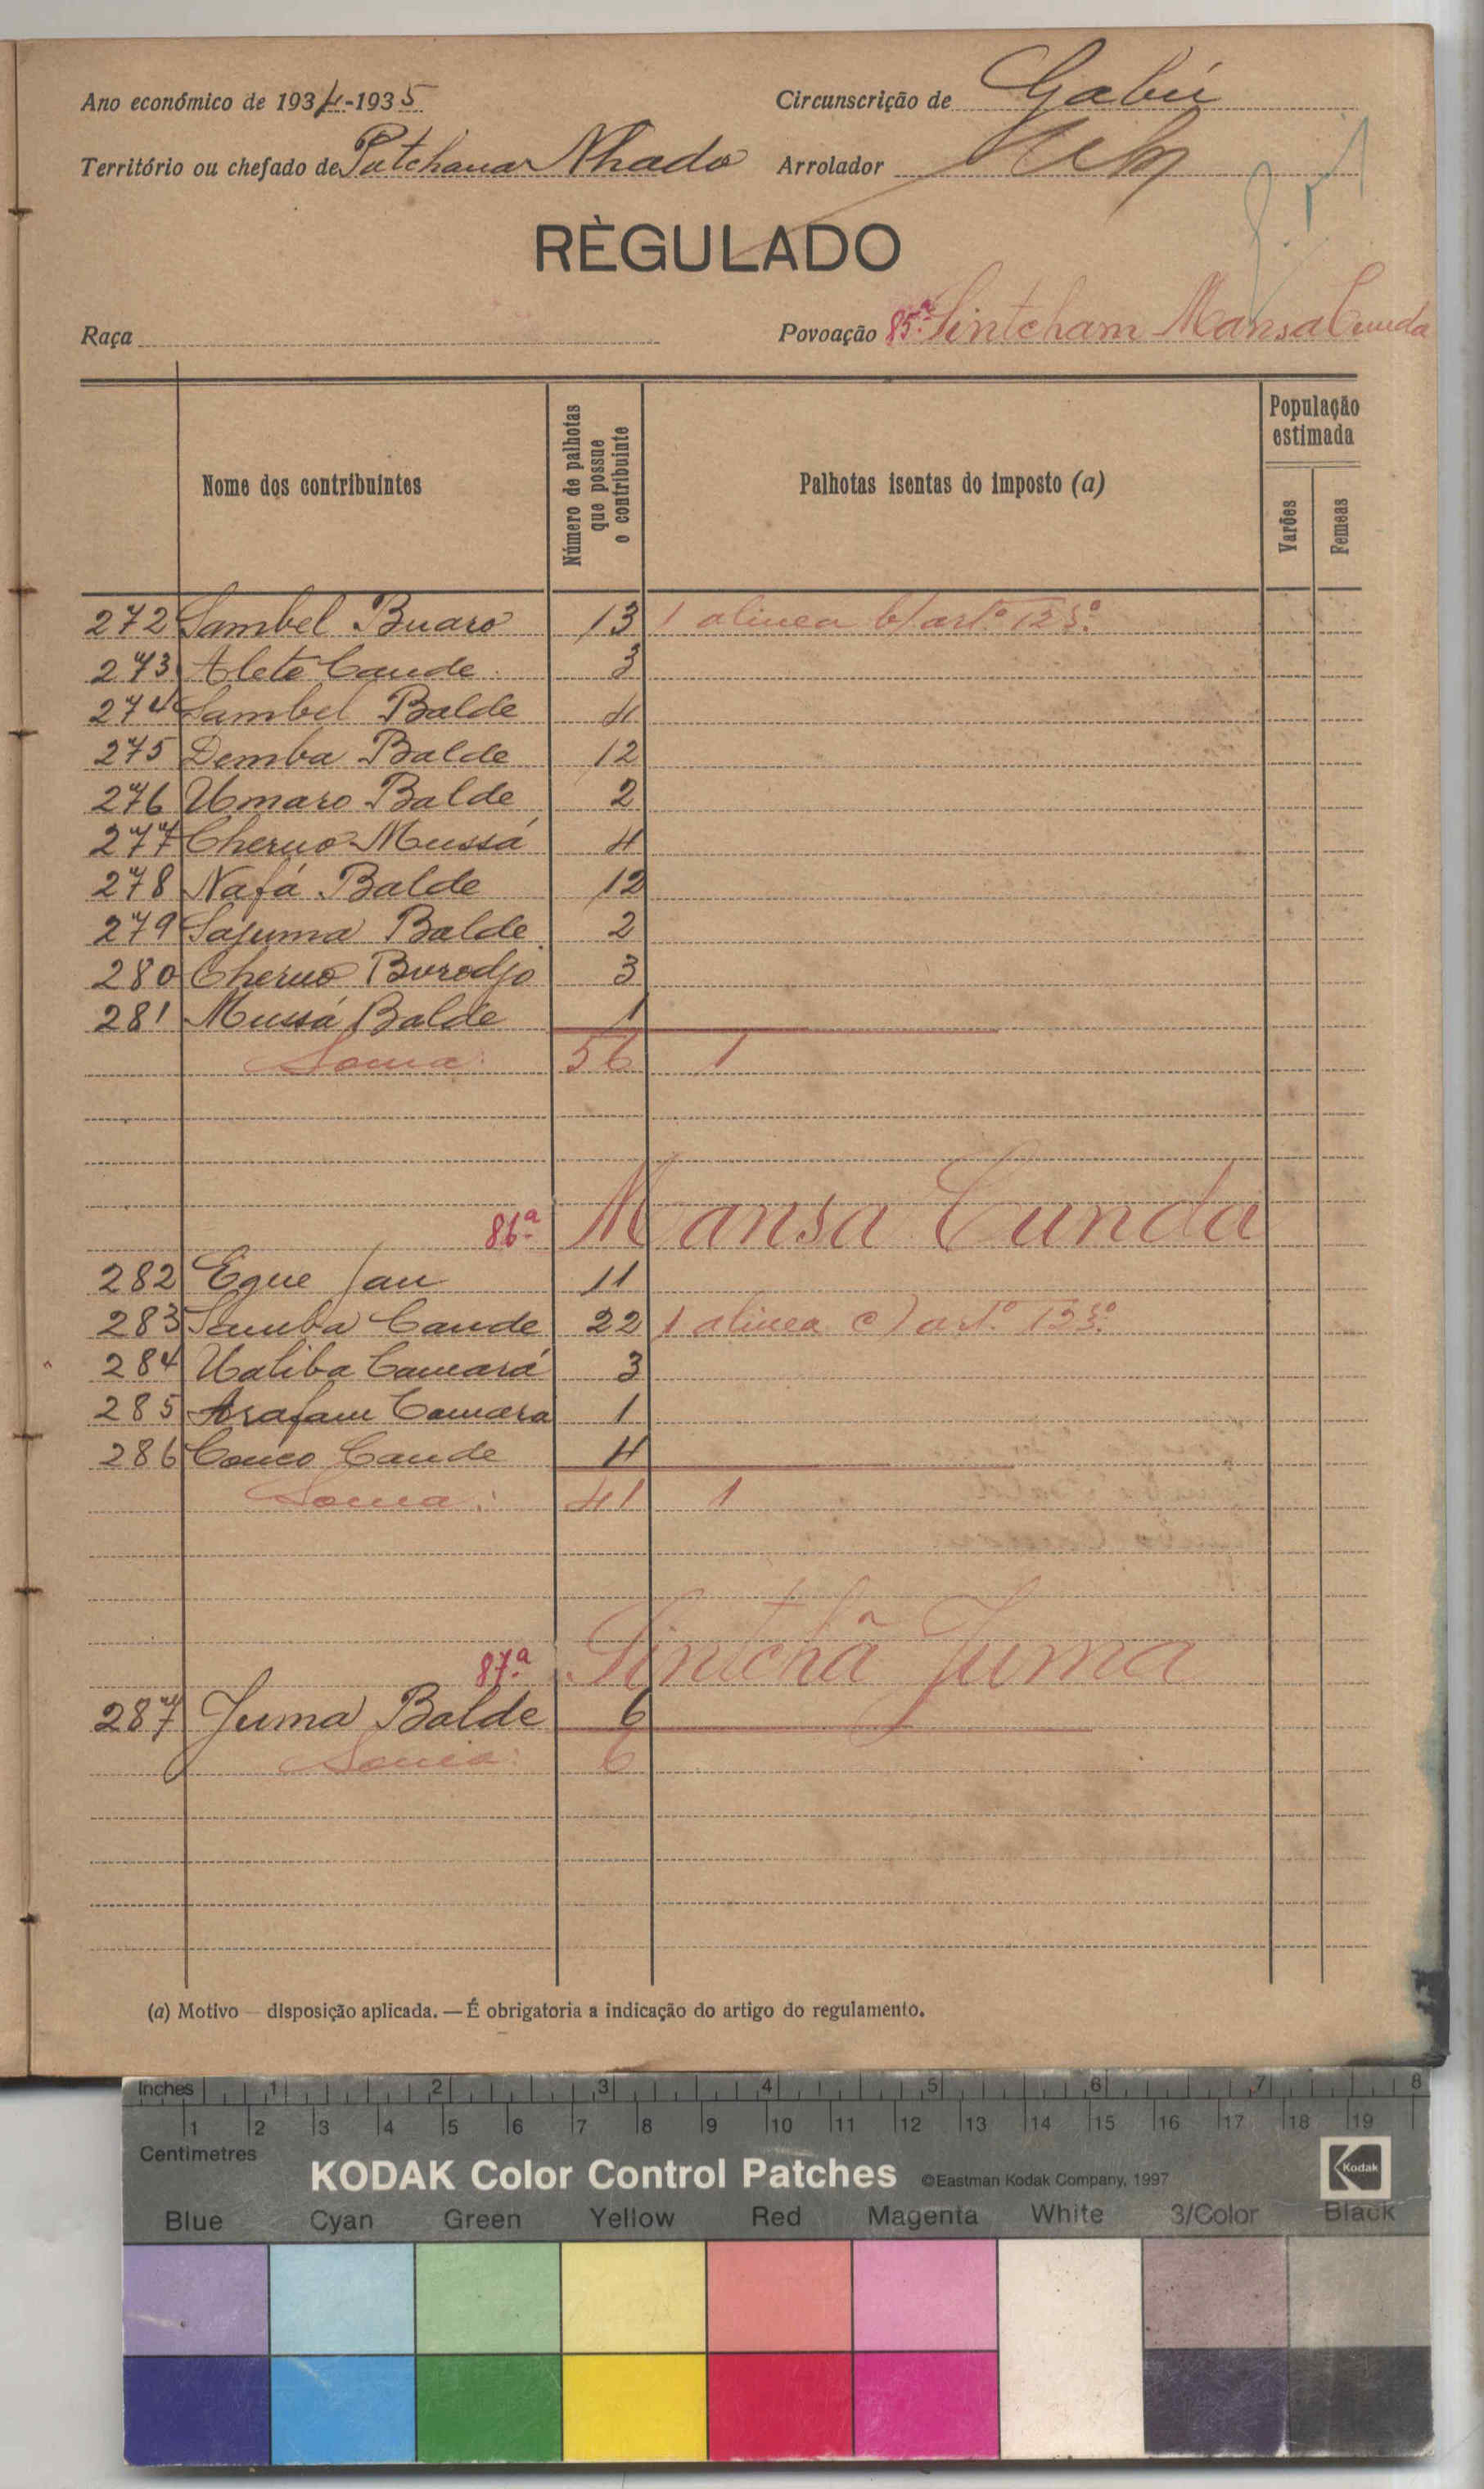 Ano económico de 1934-1935 Circunscrição de Gabú
Território ou chefado de Patchana Nhado Arrolador
RÈGULADO
Raça Povoação 85.ª Sintcham Mansa Cunda
Nome dos contribuintes
Número de palhotas que possue o contribuinte
Palhotas isentas do imposto (a)
População estimada
Varões
Femeas
272 Sambel Buaro 13 1 alinea b) art.º 123.º
273 Alete Cande 3
274 Sambel Balde 4
275 Demba Balde 12
276 Umaro Balde 2
277 Cherno Mussá 4
278 Nafá Balde 12
279 Sajuma Balde 2
280 Cherno Borodjo 3
281 Mussá Balde 1
Soma: 56 1
86.ª Mansa Cunda
282 Egue Jau 11
283 Samba Cande 22 1 alinea c) art.º 123.º
284 Ualiba Camará 3
285 Arafam Camara 1
286 Couco Cande 4
Soma: 41 1
87.ª Sintchã Juma
287 Juma Balde 6
Soma: 6
(a) Motivo — disposição aplicada. — É obrigatoria a indicação do artigo do regulamento.
Inches 1 2 3 4 5 6 7 8
1 2 3 4 5 6 7 8 9 10 11 12 13 14 15 16 17 18 19
Centimetres
KODAK Color Control Patches ©Eastman Kodak Company, 1997 Kodak
Blue Cyan Green Yellow Red Magenta White 3/Color Black